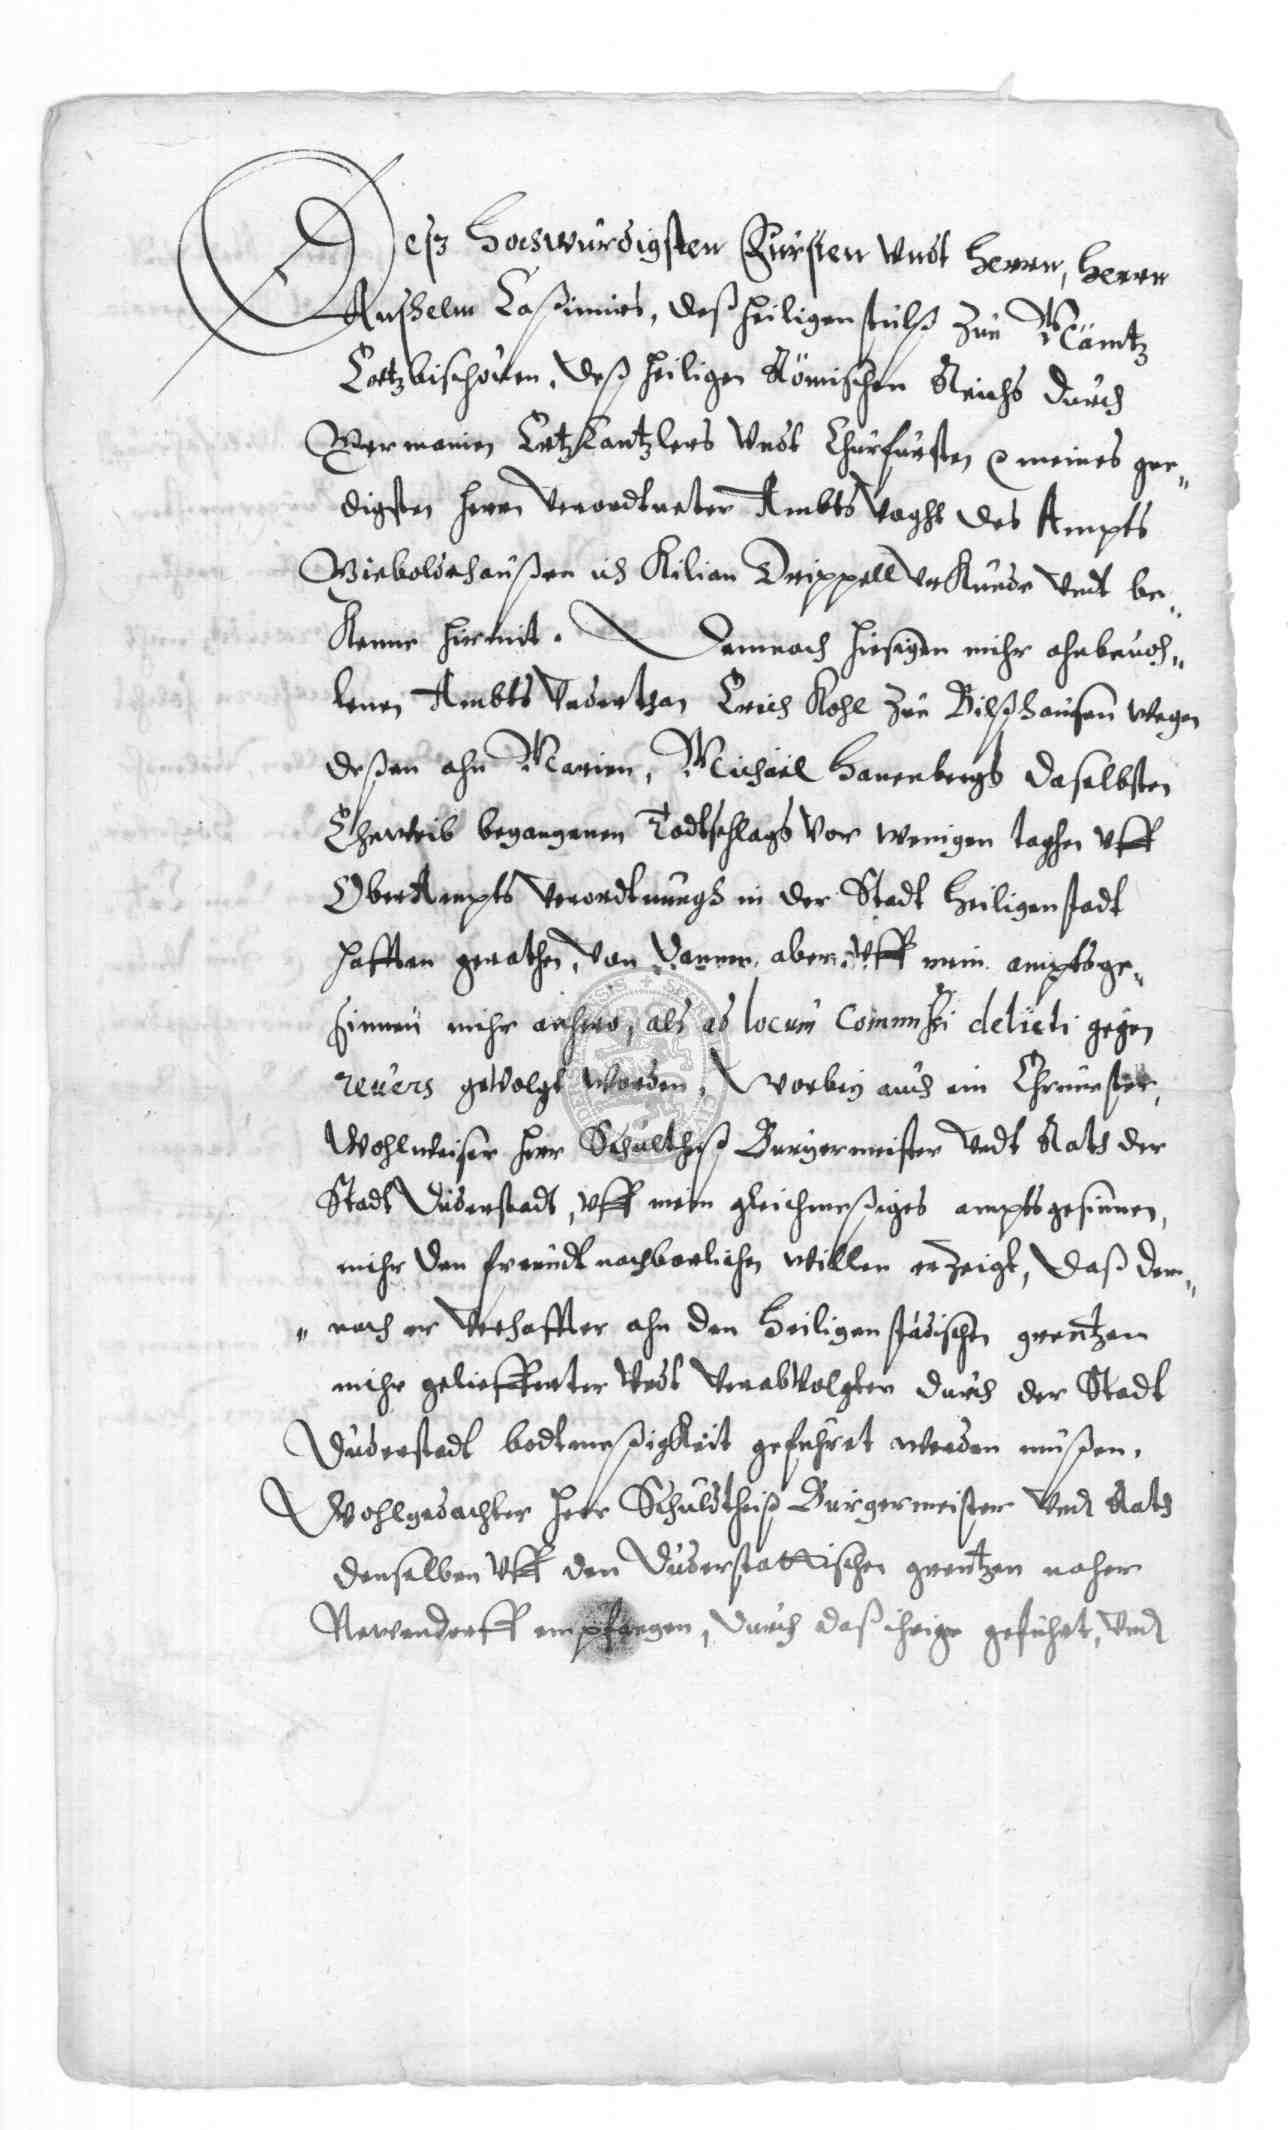 Deß Hochwürdigsten Fürsten vndt Herrn, Herrn
Anßhelm Caßimirs, deß heiligen stülß zue Mäintz
Ertzbischouen, deß heiligen Römischen Reichs durch
Germanien Ertz Cantzlers vndt Churfürsten meines gne„
digsten herrn verordtneter Ambts Voght des Ampts
Gieboldehaußen ich Kilian Drippell vrkunde vndt be„
kenne hiermit. Demnach hiesigen mihr ahnbeuoh„
lenen Ambts Vnderthan Erich Kohl zue Bilßhausen wegen
deßen ahn Marien, Michäel Hanenbergs daselbsten
Eheweib begangenen Todtschlags vor wenigen taghen vff
OberAmpts verordtnungh in der Stadt Heiligenstadt
hafften gerathen, von dannen aber vff mein amptsge„
sinnen mihr anhero, als ad locum Commissi delicti gegen
reuers gevolgt worden, Worbey auch ein Ehrnuester,
Wohlweiser herr Schultheiß Burgermeister vndt Rath der
Stadt Duderstadt, vff mein gleichmeßiges amptsgesinnen,
mihr den freundtnachbarlichen willen erzeigt, daß dem„
„nach er verhaffter ahn den Heiligenstädischen grentzen
mihr geliefferter vndt verabvolgter durch der Stadt
Duderstadt bodtmeßigkeit geführet werden müßen.
Wohlgedachter herr Schuldtheiß Burgermeister vnd Rath
denselben vff den Duderstattischen grentzen naher
Newendorff empfangen, durch daß ihrige geführt, vnd